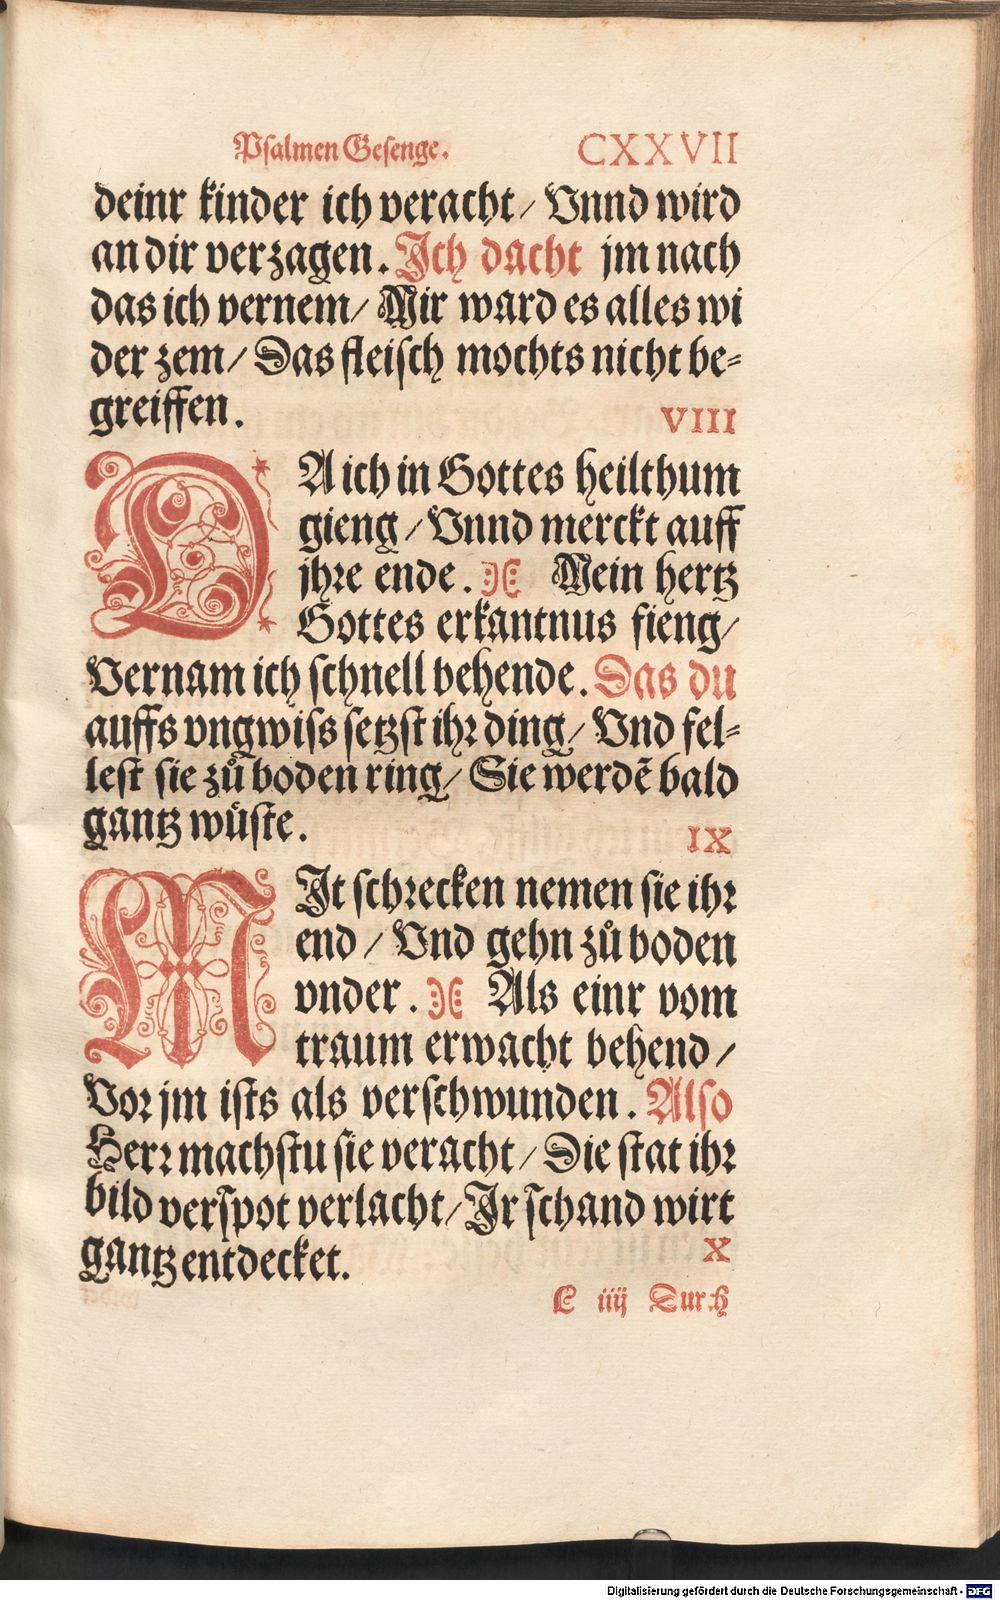 Psalmen Gesenge. CXXVII
deinr kinder ich veracht/ Vnnd wird
an dir verzagen. Ich dacht jm nach
das ich vernem/ Mir ward es alles wi
der zem/ Das fleisch mochts nicht be-
greiffen.
VIII
DA ich in Gottes heilthum
gieng/ Vnnd merckt auff
jhre ende. Mein hertz
Gottes erkantnus fieng/
Vernam ich schnell behende. Das du
auffs vngwiss setzst ihr ding/ Vnd fel-
lest sie zů boden ring/ Sie werdẽ bald
gantz wůste.
IX
MIt schrecken nemen sie ihr
end/ Vnd gehn zů boden
vnder. Als einr vom
traum erwacht behend/
Vor jm ists als verschwunden. Also
Herr machstu sie veracht/ Die stat ihr
bild verspot verlacht/ Ir schand wirt
gantz entdecket.
X
E iiij Durch
Digitalisierung gefördert durch die Deutsche Forschungsgemeinschaft - DFG